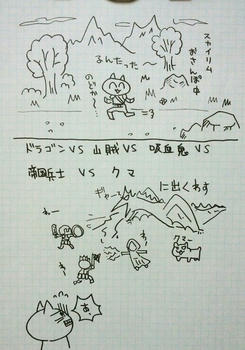 スカイリム
おさんぽ中
るんたった～
のどか～…
ドラゴン VS 山賊 VS 吸血鬼 VS
帝国兵士 VS クマ
に出くわす
ギャー
わー
クマー
わー
あ